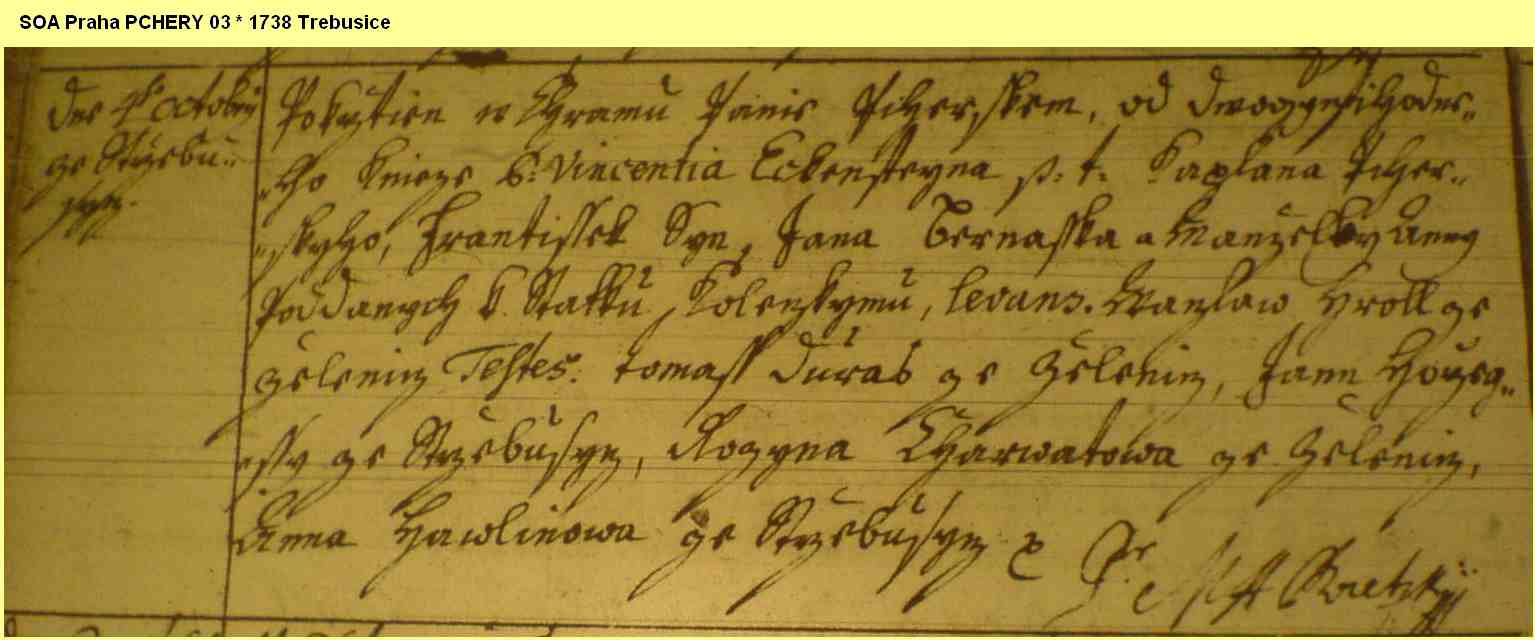 SOA Praha PCHERY 03 * 1738 Trebusice
Dne 4 octobry
ze Strzebu=
sycz.
Pokrztien w Chramu Panie Pcherskem, od dwogycztihodne=
ho knieze P: Vincentia Eckensteyna p: t: Kaplana Pcher=
skyho, Frantissek Syn, Jana Bernasska a Manzelky Anny
Poddanych k Statku Koleczkymu, levans. Waczlaw Kroll ze
Zelenicz Testes. tomass Duras ze Zelenicz, Jann
ze Strzebusycz, Rozyna Charwatowa ze Zelenicz,
Anna Hawlinowa ze Strzebusycz